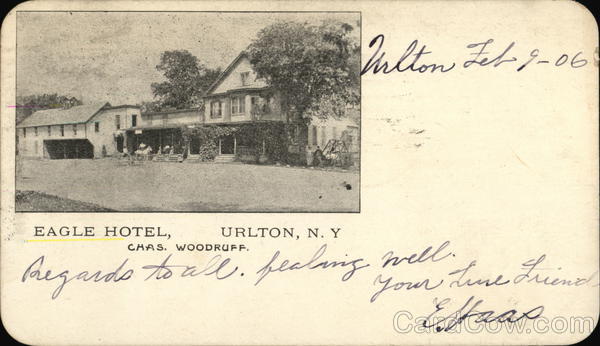 Urlton Feb 9-06
EAGLE HOTEL, URLTON, N. Y
CHAS. WOODRUFF.
Regards to all. fealing well.
your True Friend
E. Haas
CardCow.com